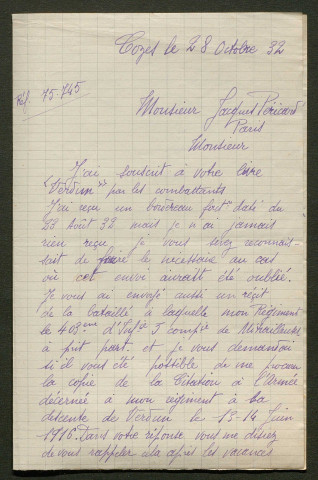 Cozes le 28 Octobre 32
Réf. 75.745
Monsieur Jacques Péricard
Paris
Monsieur
J'ai souscrit à votre livre
"Verdun" par les combattants
J'ai reçu un bordereau fort daté du
23 Août 32 mais je n'ai jamais
rien reçu, je vous serez reconnais-
sait de faire le nécessaire au cas
où cet envoi aurait été oublié.
Je vous ai envoyé aussi un récit
de la bataille à laquelle mon Régiment
le 408ème d'Inf
à prit part. et je vous demandai
s'il vous été possible de me
la copie de la Citation à l'Armée
décernée à mon régiment à sa
descente de Verdun le 13-14 Juin
1916. Dans votre réponse vous me disiez
de vous rappeler cela après les vacances